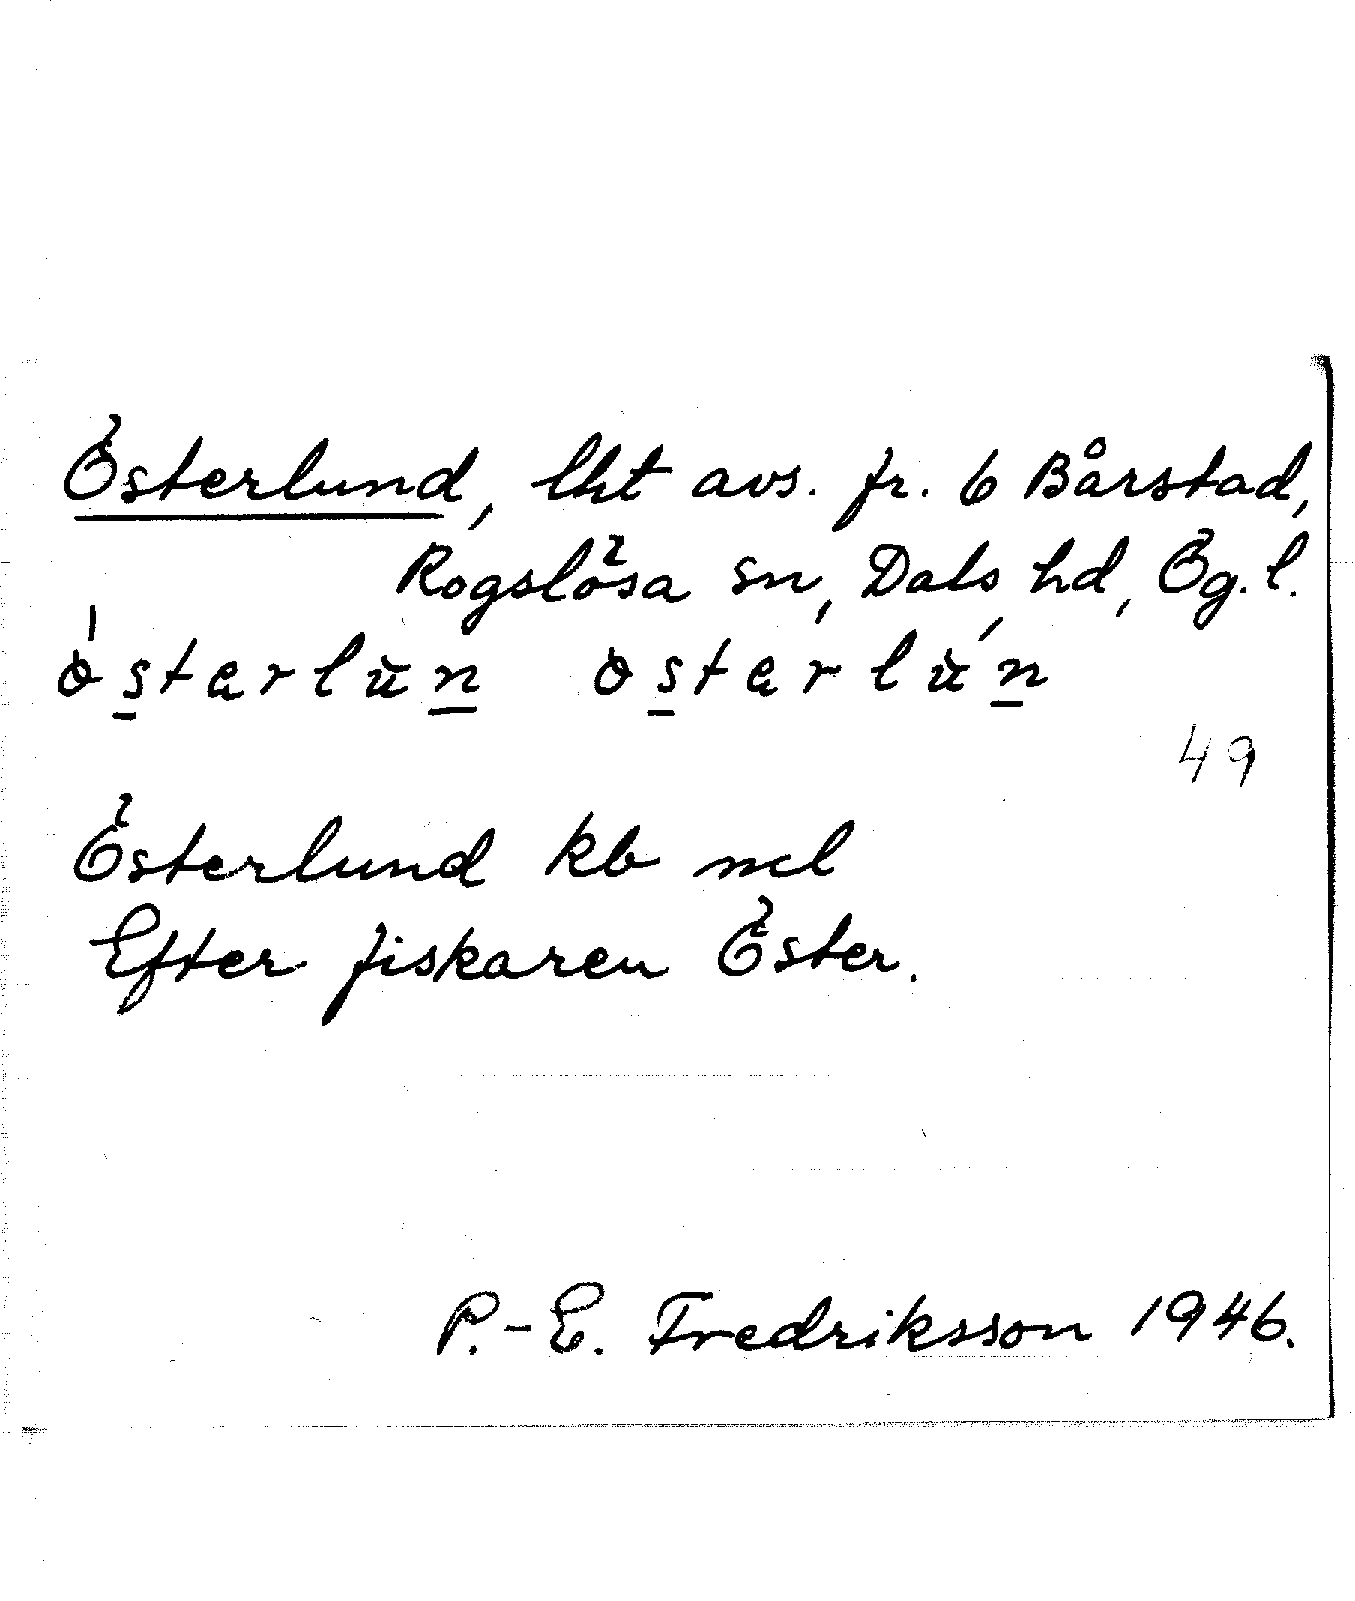 Österlund, lht avs. fr. 6 Bårstad,
Rogslösa sn, Dals hd, Ög. l.
östərlun östərlún
49
Österlund kb ncl
Efter fiskaren Öster.
P.-E. Fredriksson 1946.